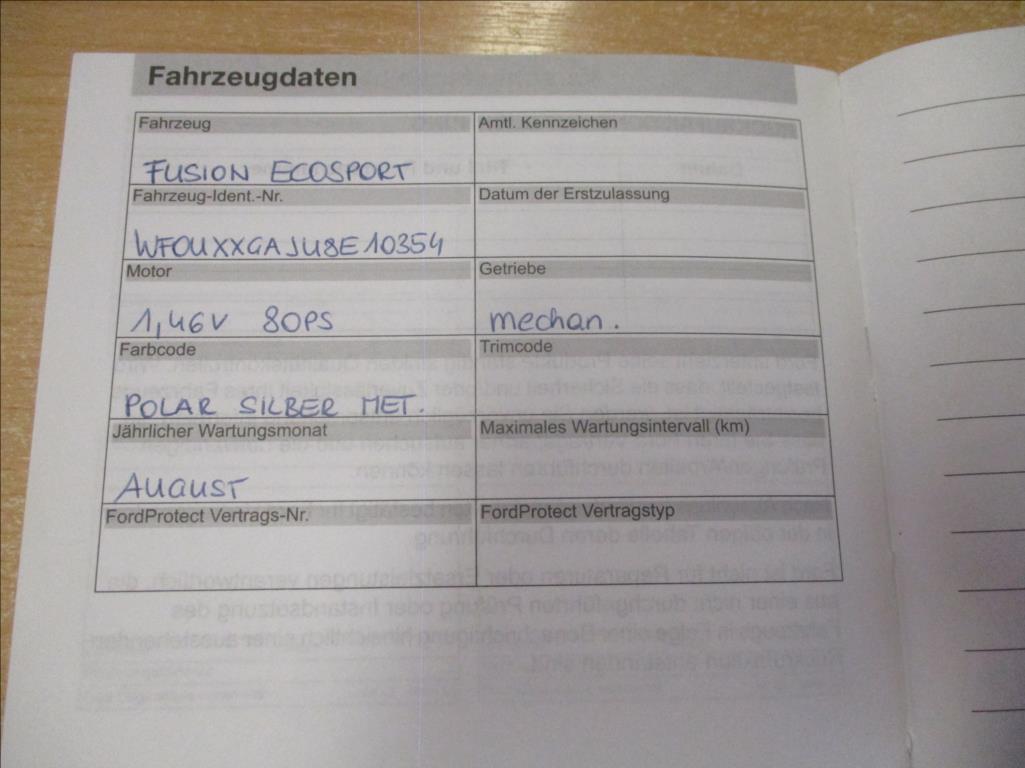 Fahrzeugdaten
Fahrzeug
Amtl. Kennzeichen
FUSION ECOSPORT
Fahrzeug-Ident.-Nr.
Datum der Erstzulassung
WFOUXXGAJU8E10354
Motor
Getriebe
1,46V 80PS
mechan.
Farbcode
Trimcode
POLAR SILBER MET.
Jährlicher Wartungsmonat
Maximales Wartungsintervall (km)
AUGUST
FordProtect Vertrags-Nr.
FordProtect Vertragstyp